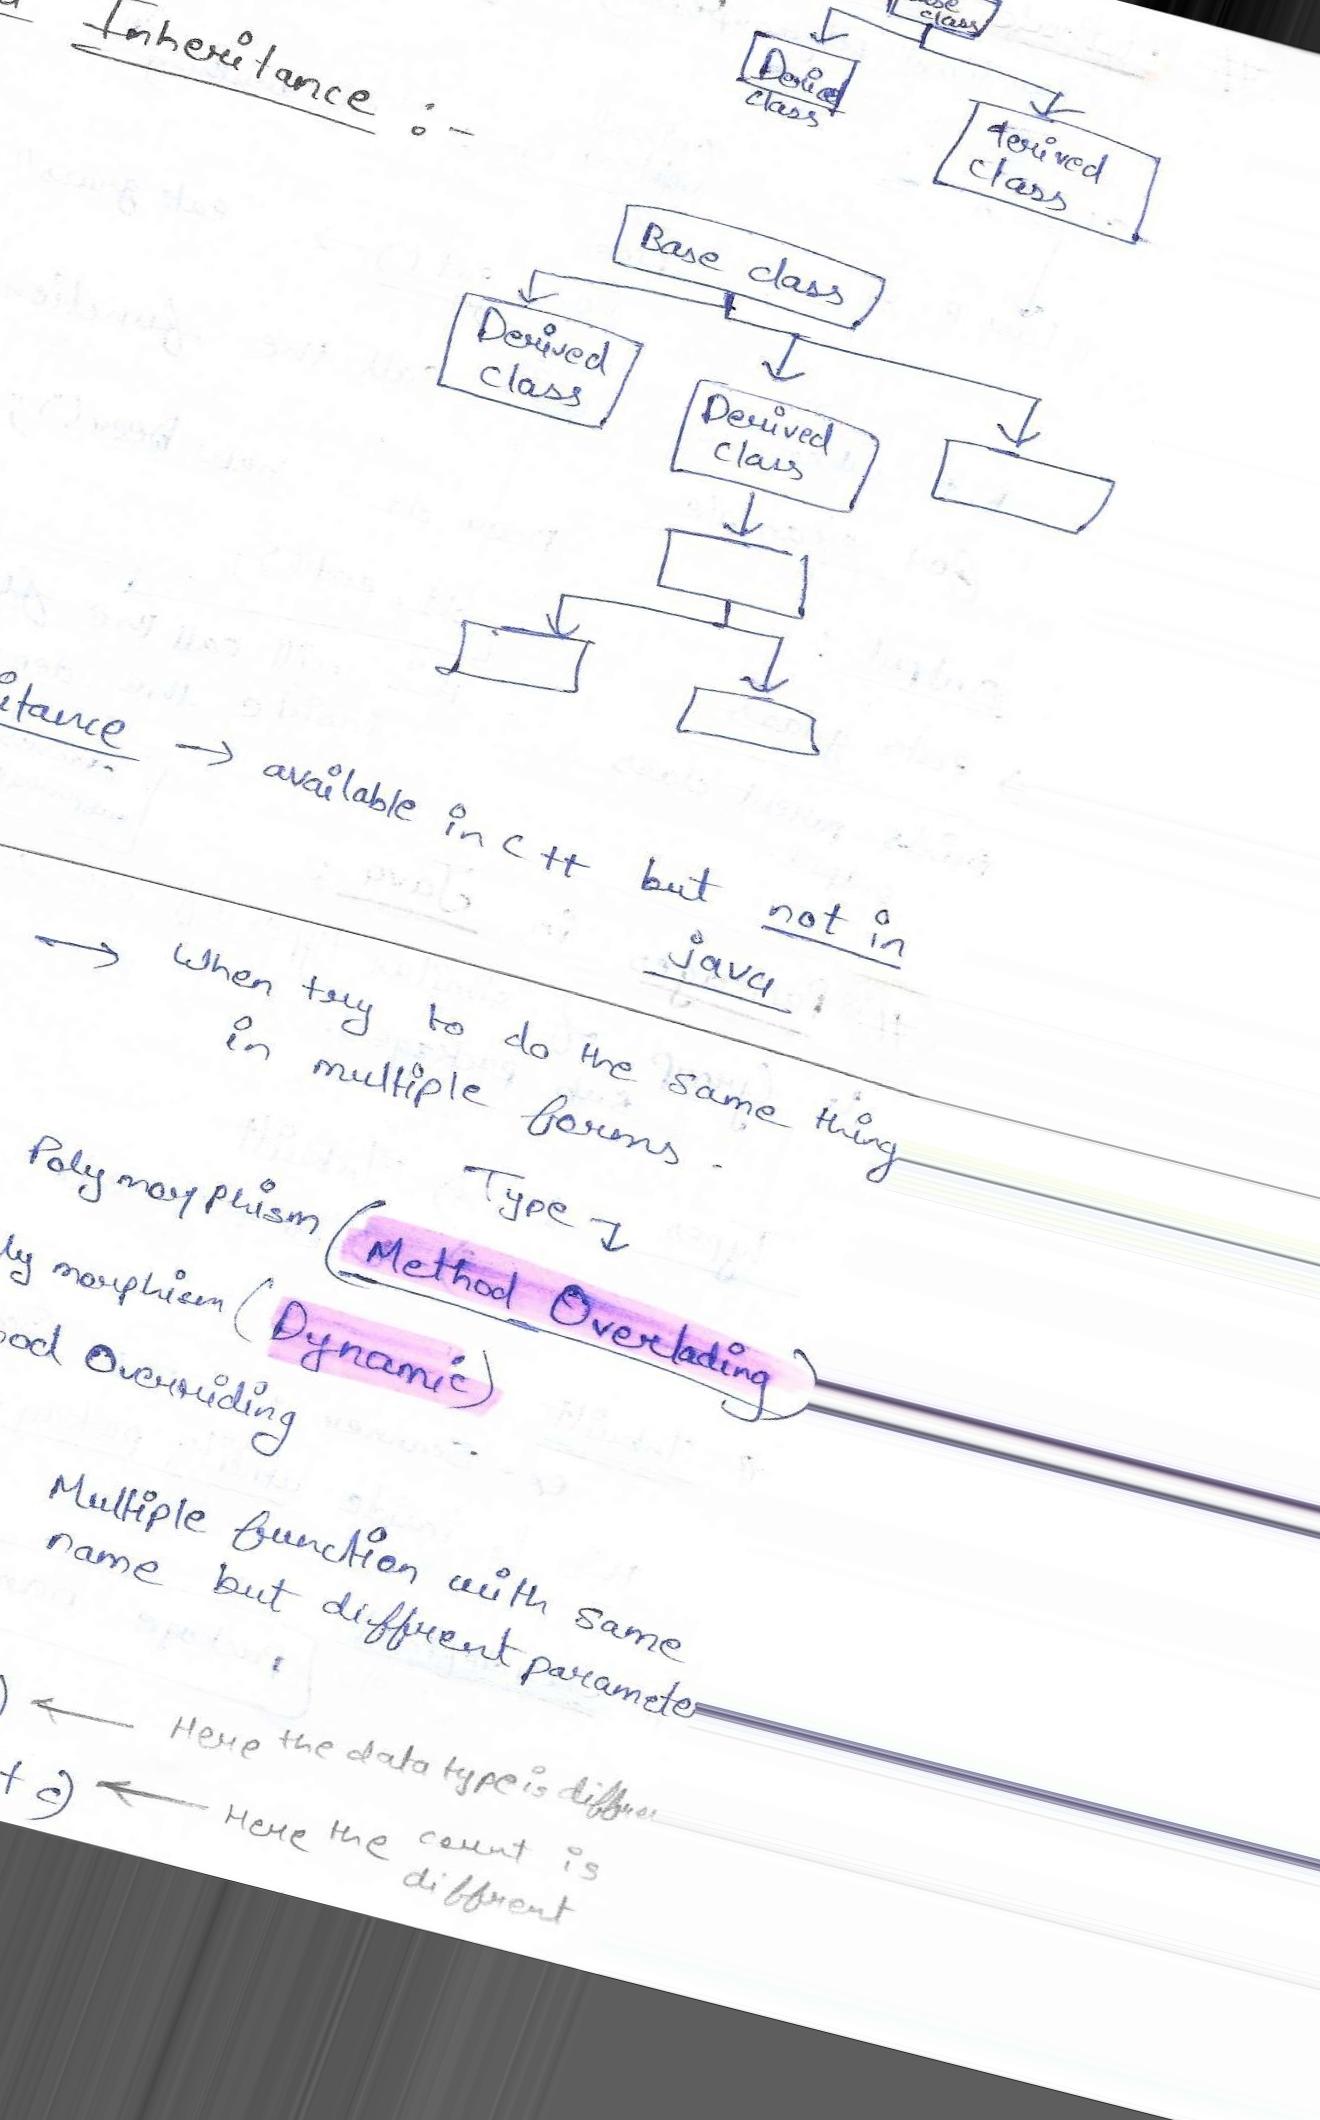 class
Derice
class
derived
class
Inheritance :-
Base class
Derived
class
Derived
class
itance → available in C++ but not in
java.
→ When try to do the same thing
in multiple forms.
Type ↓
Polymorphism (Method Overlading)
ly morphism (Dynamic)
od Overriding
Multiple function with same
name but diffrent parameter
) ← Here the data type is
+ c) ← Here the count is
diffrent